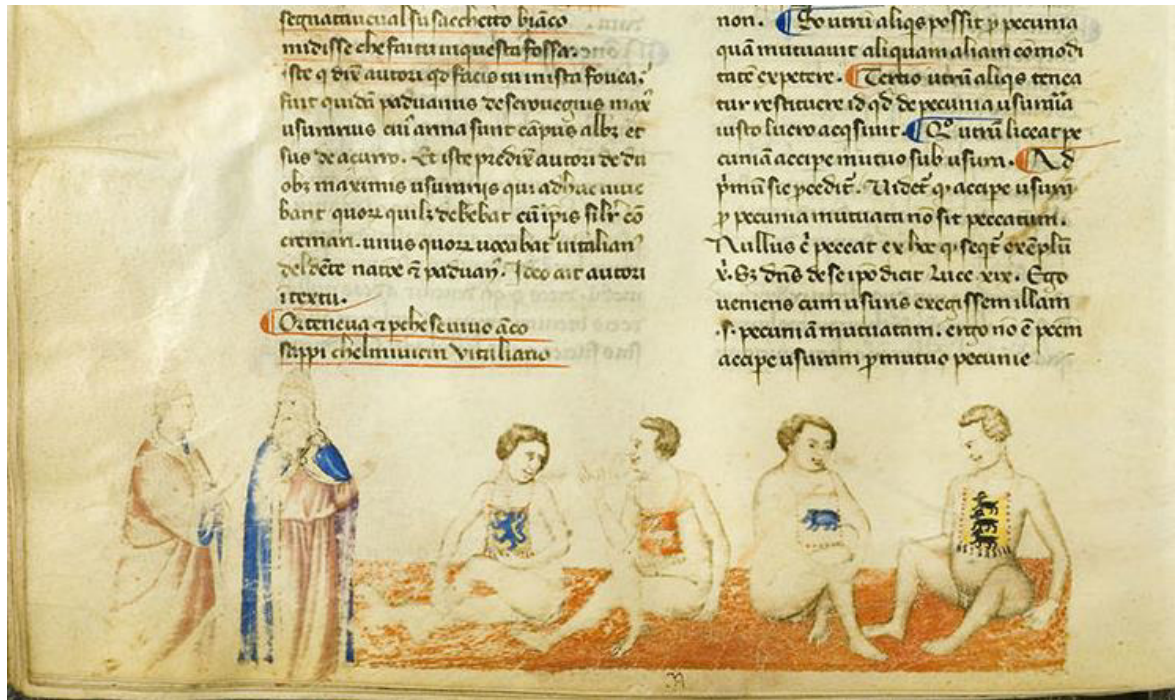 segnato avea 'l su sacchetto biāco
mi disse che fai tu in questa fossa.
iste q̄ dix̄ autori qd̄ facis tu in ista fouea.
fuit quidā paduanus
usurarius cui' arma sunt cāpus albz et
sus de açurro. Et iste
maximis usurariis qui adhuc uiue
bant
cremari. unus quoꝝ uocabat' uitalian'
del dēte
itextu.
Or te ne va ⁊ p̄che se vivo āco
sappi che 'l mi vicin Vitaliano
non. aliqs possit p pecunia
quā mutuauit aliquam aliam cōmodi
tatē expetere. Tertio utrū aliqs tenea
tur restituere id qd̄ de pecunia usuraria
iusto lucro acqsiuit. Qº utrū liceat pe
cuniā accipe mutuo sub usura. Ad
p̄mū sic pcedit̄. Uidet̄ q. accipe usurā
p pecunia mutuata nō sit peccatum.
Nullus ē peccat ex hoc q. seqt̄ exēplū
x̄. Sz dn̄s de se ipo dicit Luce xix. Ego
ueniens cum usuris exegissem illam
.s. pecuniā mutuatam. ergo no ē pccm
accipe usuram p mutuo pecunie